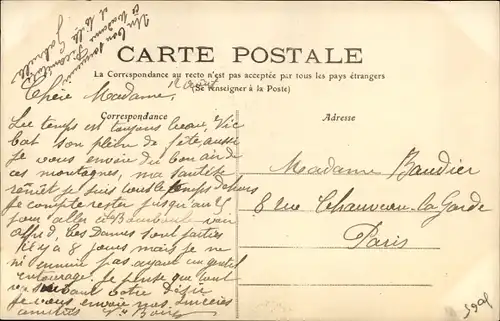 Un bon souvenir
à Madame
et Mlle
Gabrielle
CARTE POSTALE
La Correspondance au recto n'est pas acceptée par tous les pays étrangers
(Se renseigner à la Poste)
Chère Madame,
Correspondance
Adresse
Le temps est toujours beau, Vic
bat son plein de fête, aussi
je vous envoie du bon air de
ces montagnes, ma santé se
remet je suis tous le temps dehors
je compte rester jusqu'au 25
pour aller à voir
Alfred, Les Dames sont parties
il y a 8 jours mais je ne
m'ennuie pas ayant un gentil
entourage. Je pense que tout
va suivant votre Désir
je vous envoie mes sincères
amitiés
Madame Baudier
8 rue Chauveau-la-Garde
Paris